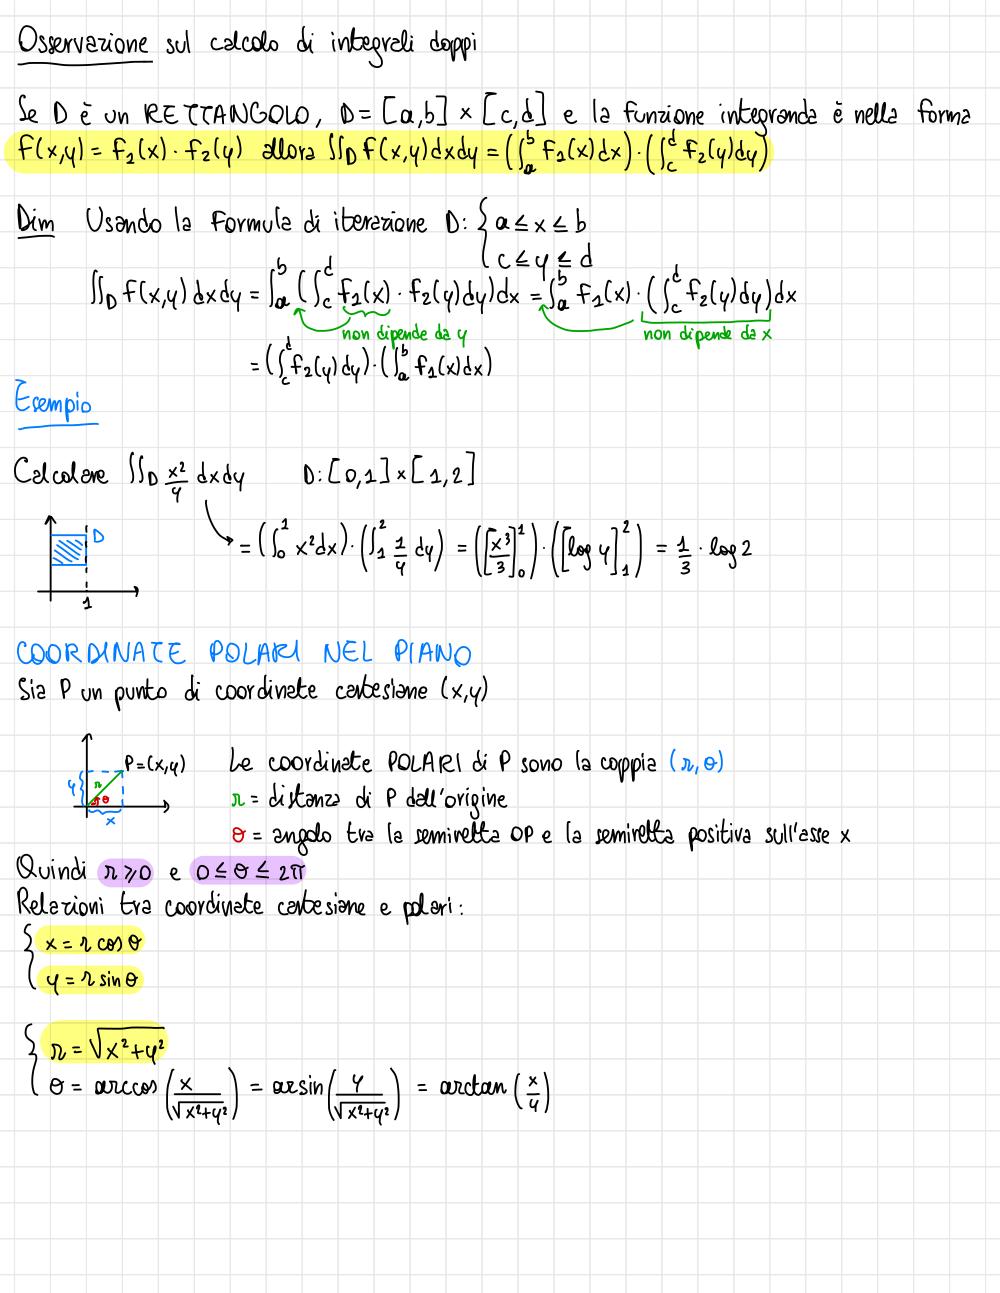 Osservazione sul calcolo di integrali doppi
Se D è un RETTANGOLO, D = [a,b] × [c,d] e la funzione integranda è nella forma
f(x,y) = f₁(x) · f₂(y) allora ∬_D f(x,y)dxdy = (∫_a^b f₁(x)dx) · (∫_c^d f₂(y)dy)
Dim Usando la formula di iterazione D: { a ≤ x ≤ b
c ≤ y ≤ d
∬_D f(x,y) dxdy = ∫_a^b (∫_c^d f₁(x) · f₂(y)dy)dx = ∫_a^b f₁(x) · (∫_c^d f₂(y)dy)dx
non dipende da y non dipende da x
= (∫_c^d f₂(y)dy) · (∫_a^b f₁(x)dx)
Esempio
Calcolare ∬_D x²/y dxdy D: [0,1] × [1,2]
D
= (∫_0^1 x²dx) · (∫_1^2 1/y dy) = ([x³/3]_0^1) · ([log y]_1^2) = 1/3 · log 2
1
COORDINATE POLARI NEL PIANO
Sia P un punto di coordinate cartesiane (x,y)
P=(x,y) Le coordinate POLARI di P sono la coppia (r, θ)
y r θ x
r = distanza di P dall'origine
θ = angolo tra la semiretta OP e la semiretta positiva sull'asse x
Quindi r ⩾ 0 e 0 ≤ θ ≤ 2π
Relazioni tra coordinate cartesiane e polari:
{ x = r cos θ
y = r sin θ
{ r = √(x²+y²)
θ = arccos (x/√(x²+y²)) = arsin (y/√(x²+y²)) = arctan (x/y)